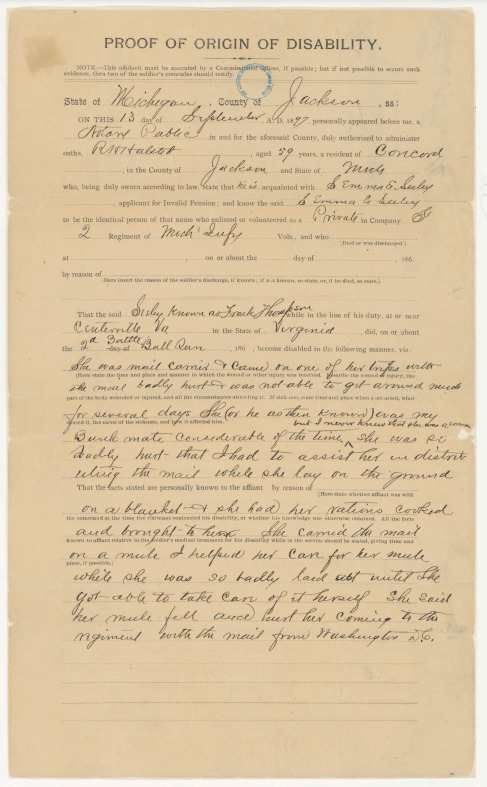 PROOF OF ORIGIN OF DISABILITY.
NOTE.—This affidavit must be executed by a Commissioned Officer, if possible; but if not possible to secure such
evidence, then two of the soldier's comrades should testify.
State of Michigan, County of Jackson, ss:
ON THIS 13 day of September, A. D. 1897, personally appeared before me, a
Notary Public in and for the aforesaid County, duly authorized to administer
oaths, R H Halsted, aged 59 years, a resident of Concord
, in the County of Jackson and State of Mich
who, being duly sworn according to law, state that he is acquainted with S Emma E. Seeley
, applicant for Invalid Pension; and know the said S Emma E Seeley
to be the identical person of that name who enlisted or volunteered as a Private in Company F
2 Regiment of Mich' Infy Vols., and who
[Died or was discharged]
at , on or about the day of , 186
by reason of
[Here insert the reason of the soldier's discharge, if known; if not known, so state, or, if he died, so state.]
That the said Seeley Known as Frank Thompson while in the line of his duty, at or near
Centerville Va in the State of Virginia, did, on or about
the 2d Battle day of Bull Run, 186 , become disabled in the following manner, viz:
She was mail carrier & came on one of her trips with
[Here state place and manner in which the wound or other injury was received,
the mail badly hurt & was not able to get around much
part of the body wounded or injured, and all the circumstances attending it. If sickness, state time and place when contracted, what
for several days She (or he as then known) was my
caused it, the name of the sickness, and how it affected him.
but I never knew that she was a woman
Bunk mate considerable of the time, she was so
badly hurt that I had to assist her in distrib
uting the mail while she lay on the ground
That the facts stated are personally known to the affiant by reason of
[Here state whether affiant was with
on a blanket & she had her rations cooked
the command at the time the claimant contracted his disability, or whether his knowledge was otherwise obtained. All the facts
and brought to her She carried the mail
known to affiant relative to the claimant's medical treatment for his disability while in the service should be stated, giving time and
on a mule I helped her care for her mule
place, if possible.]
while she was so badly laid up until she
got able to take care of it herself She said
her mule fell and hurt her coming to the
regiment with the mail from Washington D.C.